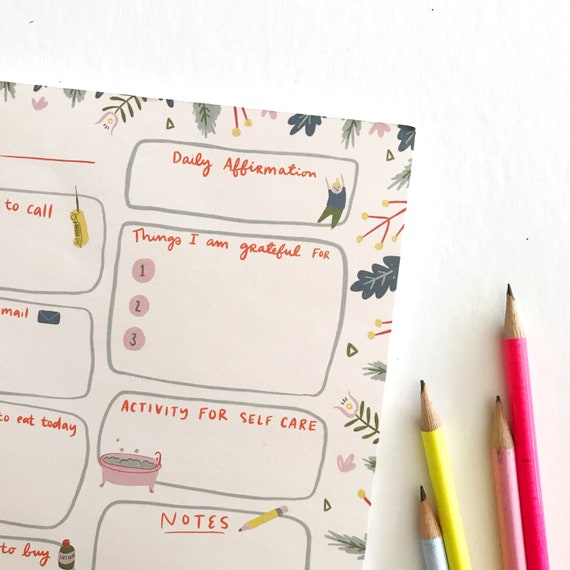 to call
mail
to eat today
to buy
Daily Affirmation
Things I am grateful FOR
1
2
3
ACTIVITY FOR SELF CARE
NOTES